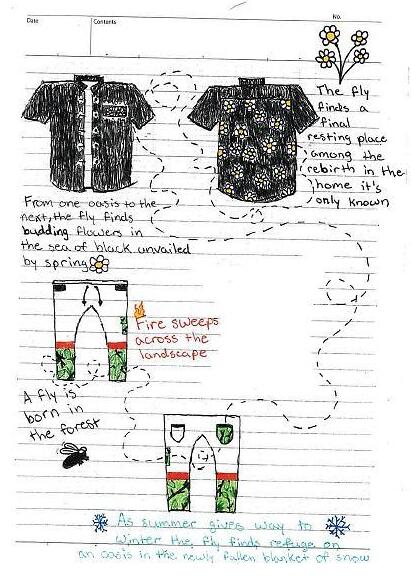 Date
Contents
No.
The fly
finds a
final
resting place
among the
rebirth in the
home it's
only known
From one oasis to the
next, the fly finds
budding flowers in
the sea of black unvailed
by spring
Fire sweeps
across the
landscape
A fly is
born in
the forest
As summer gives way to
winter the, fly finds refuge on
an oasis in the newly fallen blanket of snow